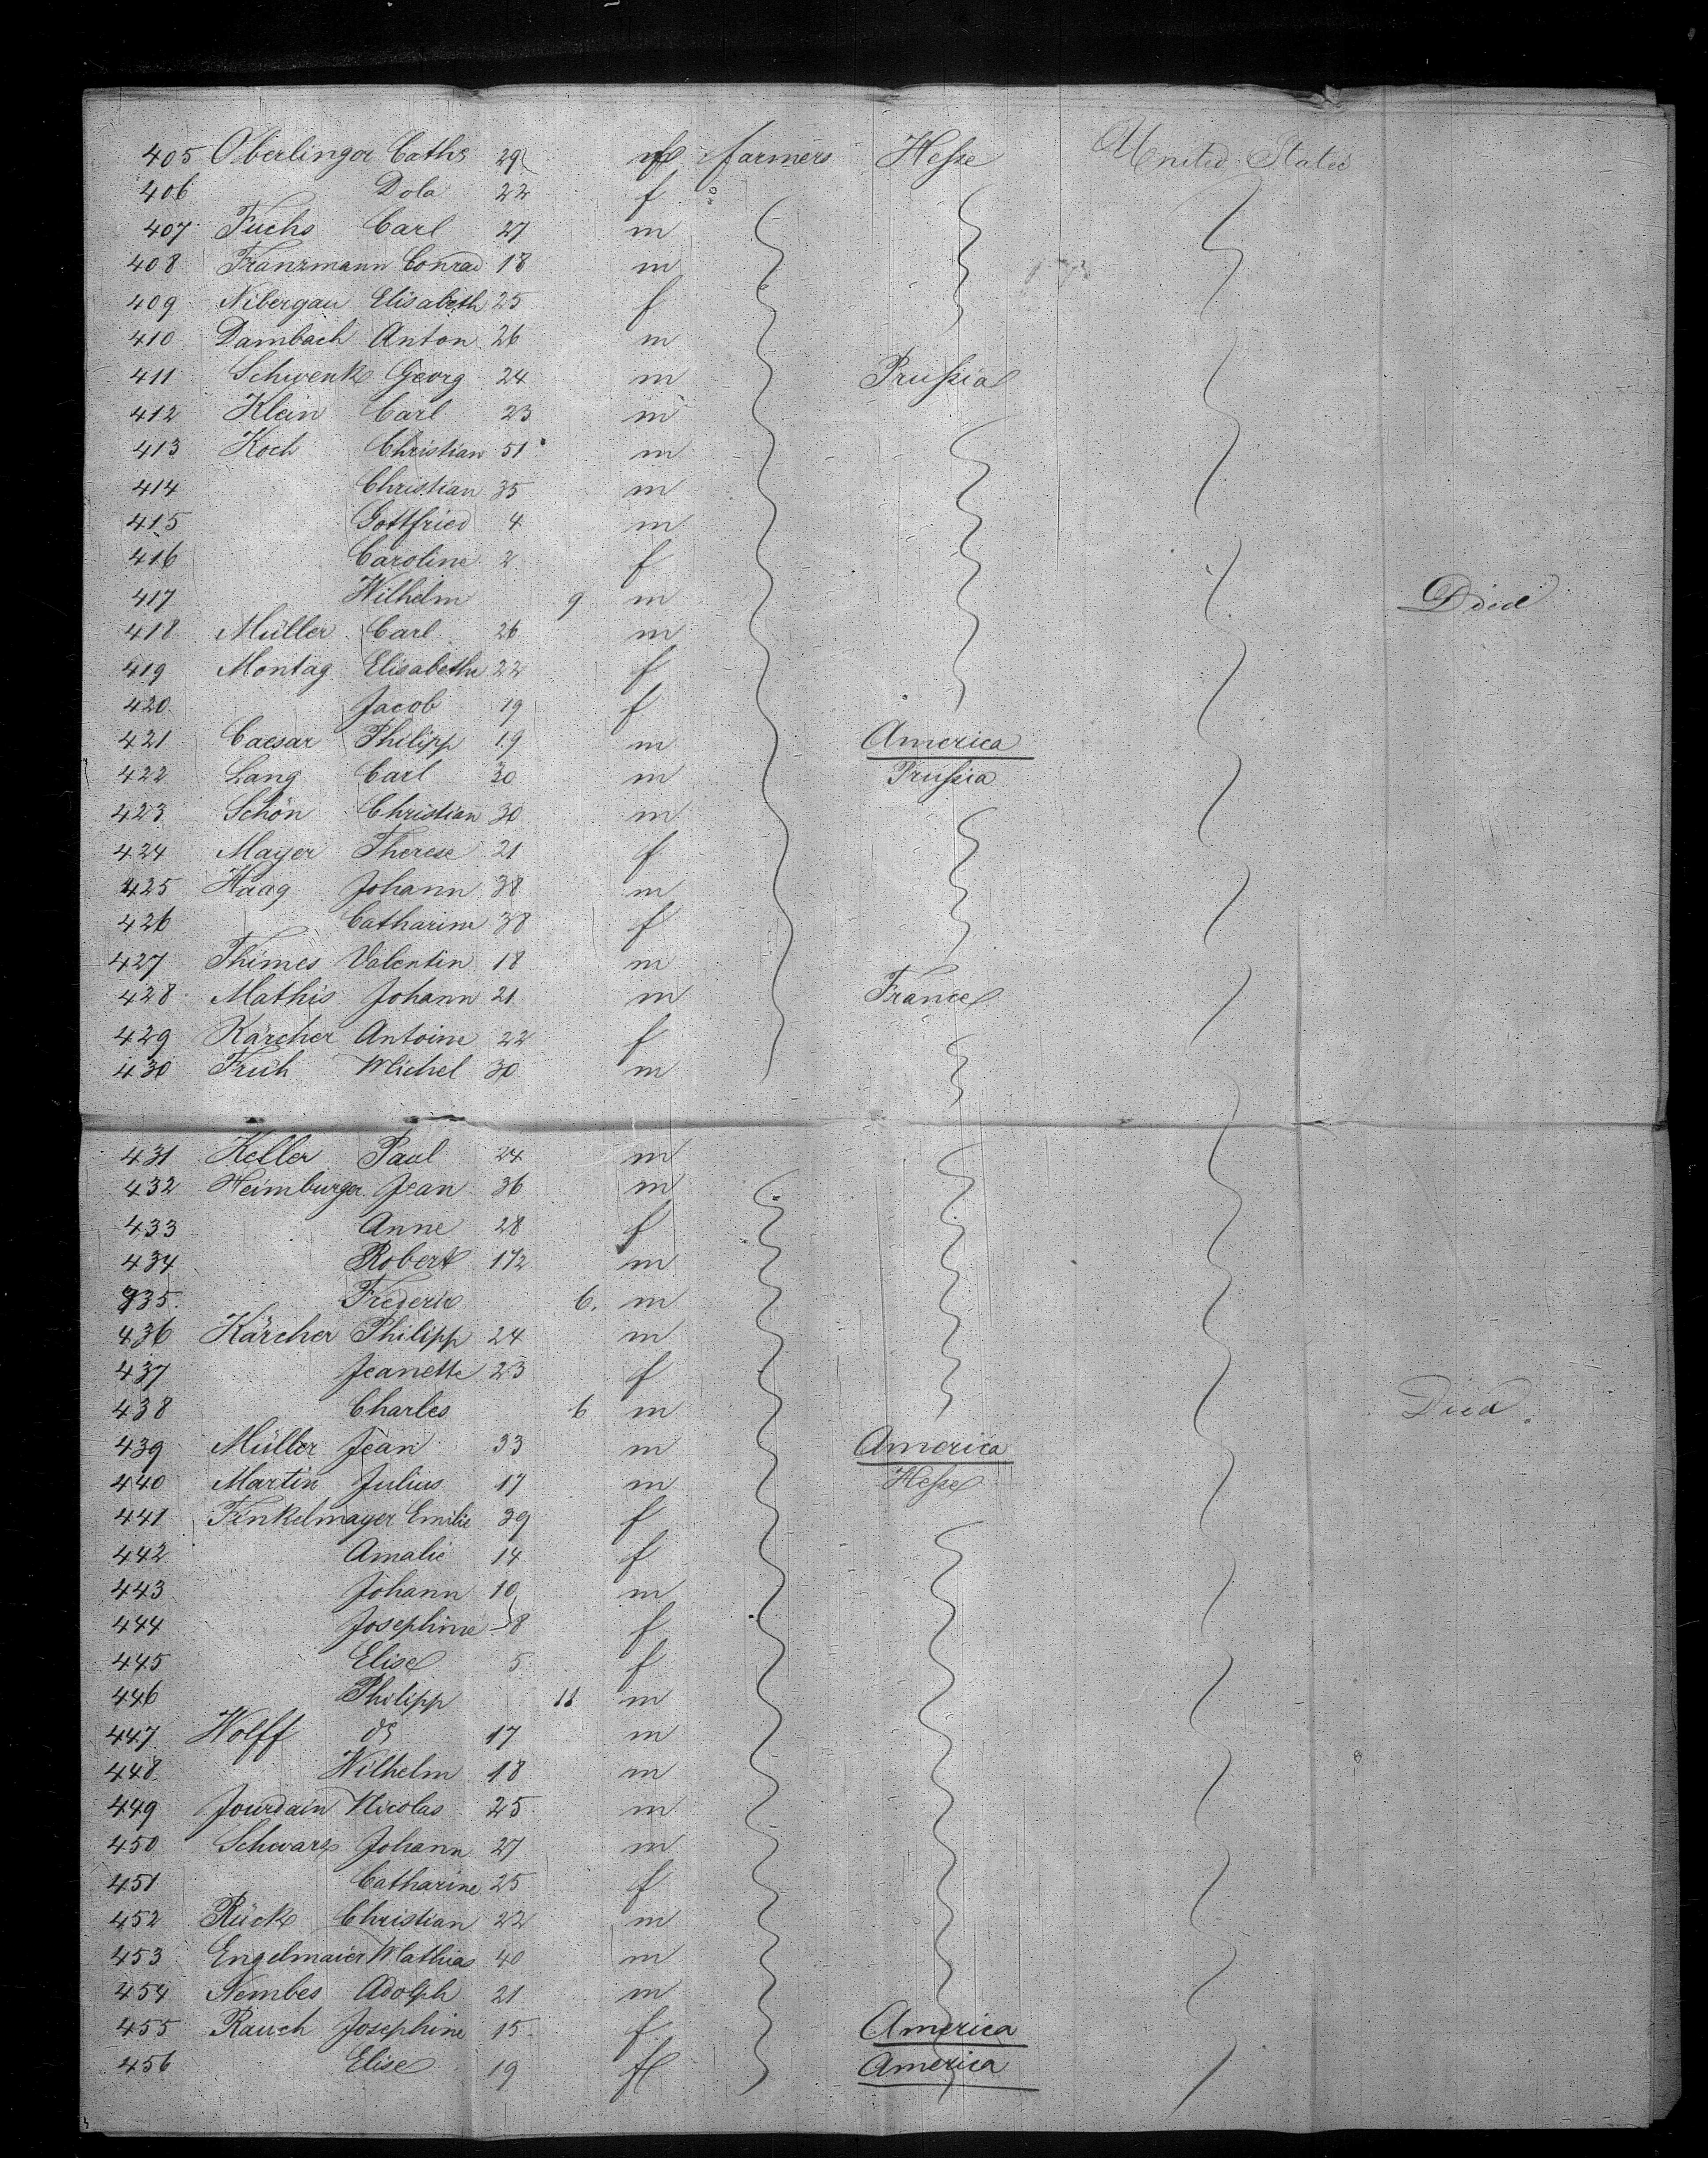 405 Oberlinger Cathe 29 f farmers Hesse United States
406 Dola 22 f
407 Fuchs Carl 27 m
408 Franzmann Conrad 18 m
409 Nibergau Elisabeth 25 f
410 Dambach Anton 26 m
411 Schwenk Georg 24 m Prussia
412 Klein Carl 23 m
413 Koch Christian 51 m
414 Christian 35 m
415 Gottfried 4 m
416 Caroline 2 f
417 Wilhelm 9 m Died
418 Müller Carl 26 m
419 Montag Elisabethe 22 f
420 Jacob 19 f
421 Caesar Philipp 19 m America
422 Lang Carl 30 m Prussia
423 Schön Christian 30 m
424 Mayer Therese 21 f
425 Haag Johann 38 m
426 Catharine 38 f
427 Thimes Valentin 18 m
428 Mathis Johann 21 m France
429 Kärcher Antoine 22 f
430 Früh Michel 30 m
431 Keller Paul 24 m
432 Heimburger Jean 36 m
433 Anne 28 f
434 Robert 1 1/2 m
435 Frederic 6. m
436 Kärcher Philipp 24 m
437 Jeanette 23 f
438 Charles 6 m Died
439 Müller Jean 33 m America
440 Martin Julius 17 m Hesse
441 Finkelmayer Emilie 39 f
442 Amalie 14 f
443 Johann 10 m
444 Josephine 8 f
445 Elise 5 f
446 Philipp 11 m
447 Wolff 17 m
448 Wilhelm 18 m
449 Jourdain Nicolas 25 m
450 Schwarz Johann 27 m
451 Catharine 25 f
452 Rück Christian 22 m
453 Engelmaier Mathias 40 m
454 Nembes Adolph 21 m
455 Rauch Josephine 15 f America
456 Elise 19 f America